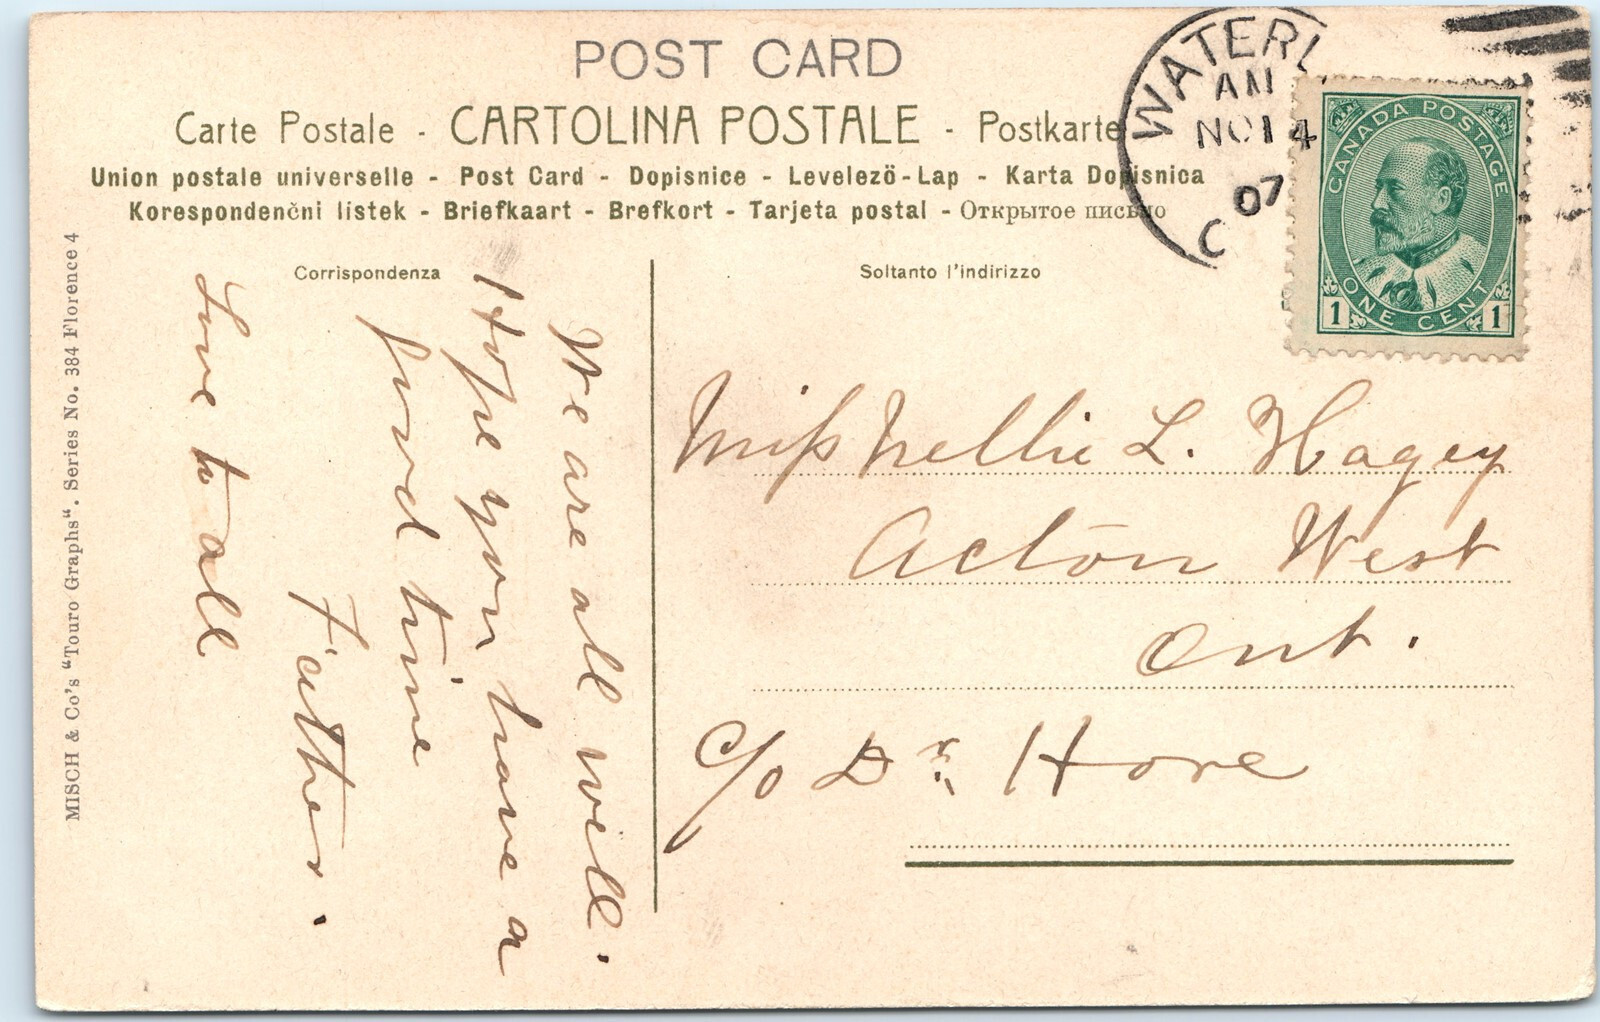 POST CARD
Carte Postale - CARTOLINA POSTALE - Postkarte
Union postale universelle - Post Card - Dopisnice - Levelezö-Lap - Karta Dopisnica
Korespondenčni listek - Briefkaart - Brefkort - Tarjeta postal - Открытое письмо
Corrispondenza
Soltanto l'indirizzo
WATERL
AM
NO 14
07
CANADA POSTAGE
ONE CENT
1 1
We are all well.
Hope you have a
good time
Father.
Love to all
Miss Nellie L. Hagey
Acton West
Ont.
c/o Dr. Hore
MISCH & Co's "Touro Graphs". Series No. 384 Florence 4